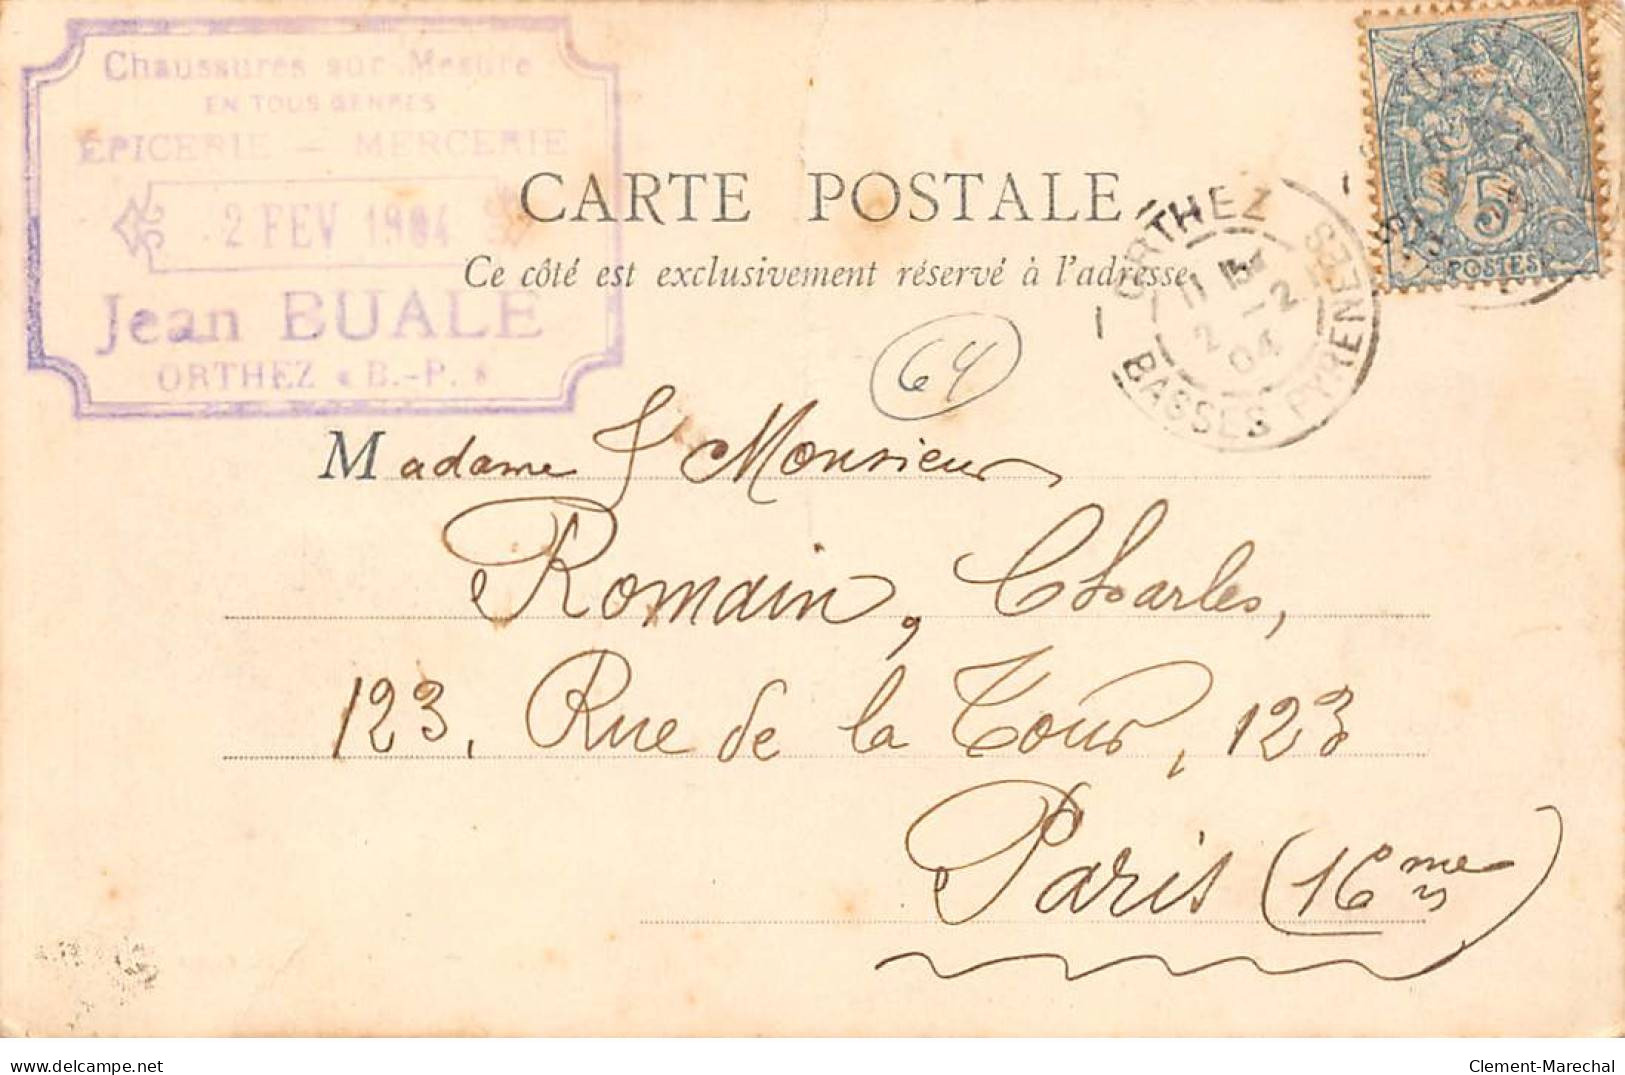 Chaussures sur Mesure
EN TOUS GENRES
ÉPICERIE – MERCERIE
2 FEV 1904
Jean BUALE
ORTHEZ B.-P.
CARTE POSTALE
Ce côté est exclusivement réservé à l'adresse
ORTHEZ
2 -2
04
BASSES PYRENEES
5
POSTES
64
Madame & Monsieur
Romain, Charles,
123, Rue de la Tour, 123
Paris (16eme)
www.delcampe.net
Clement-Marechal